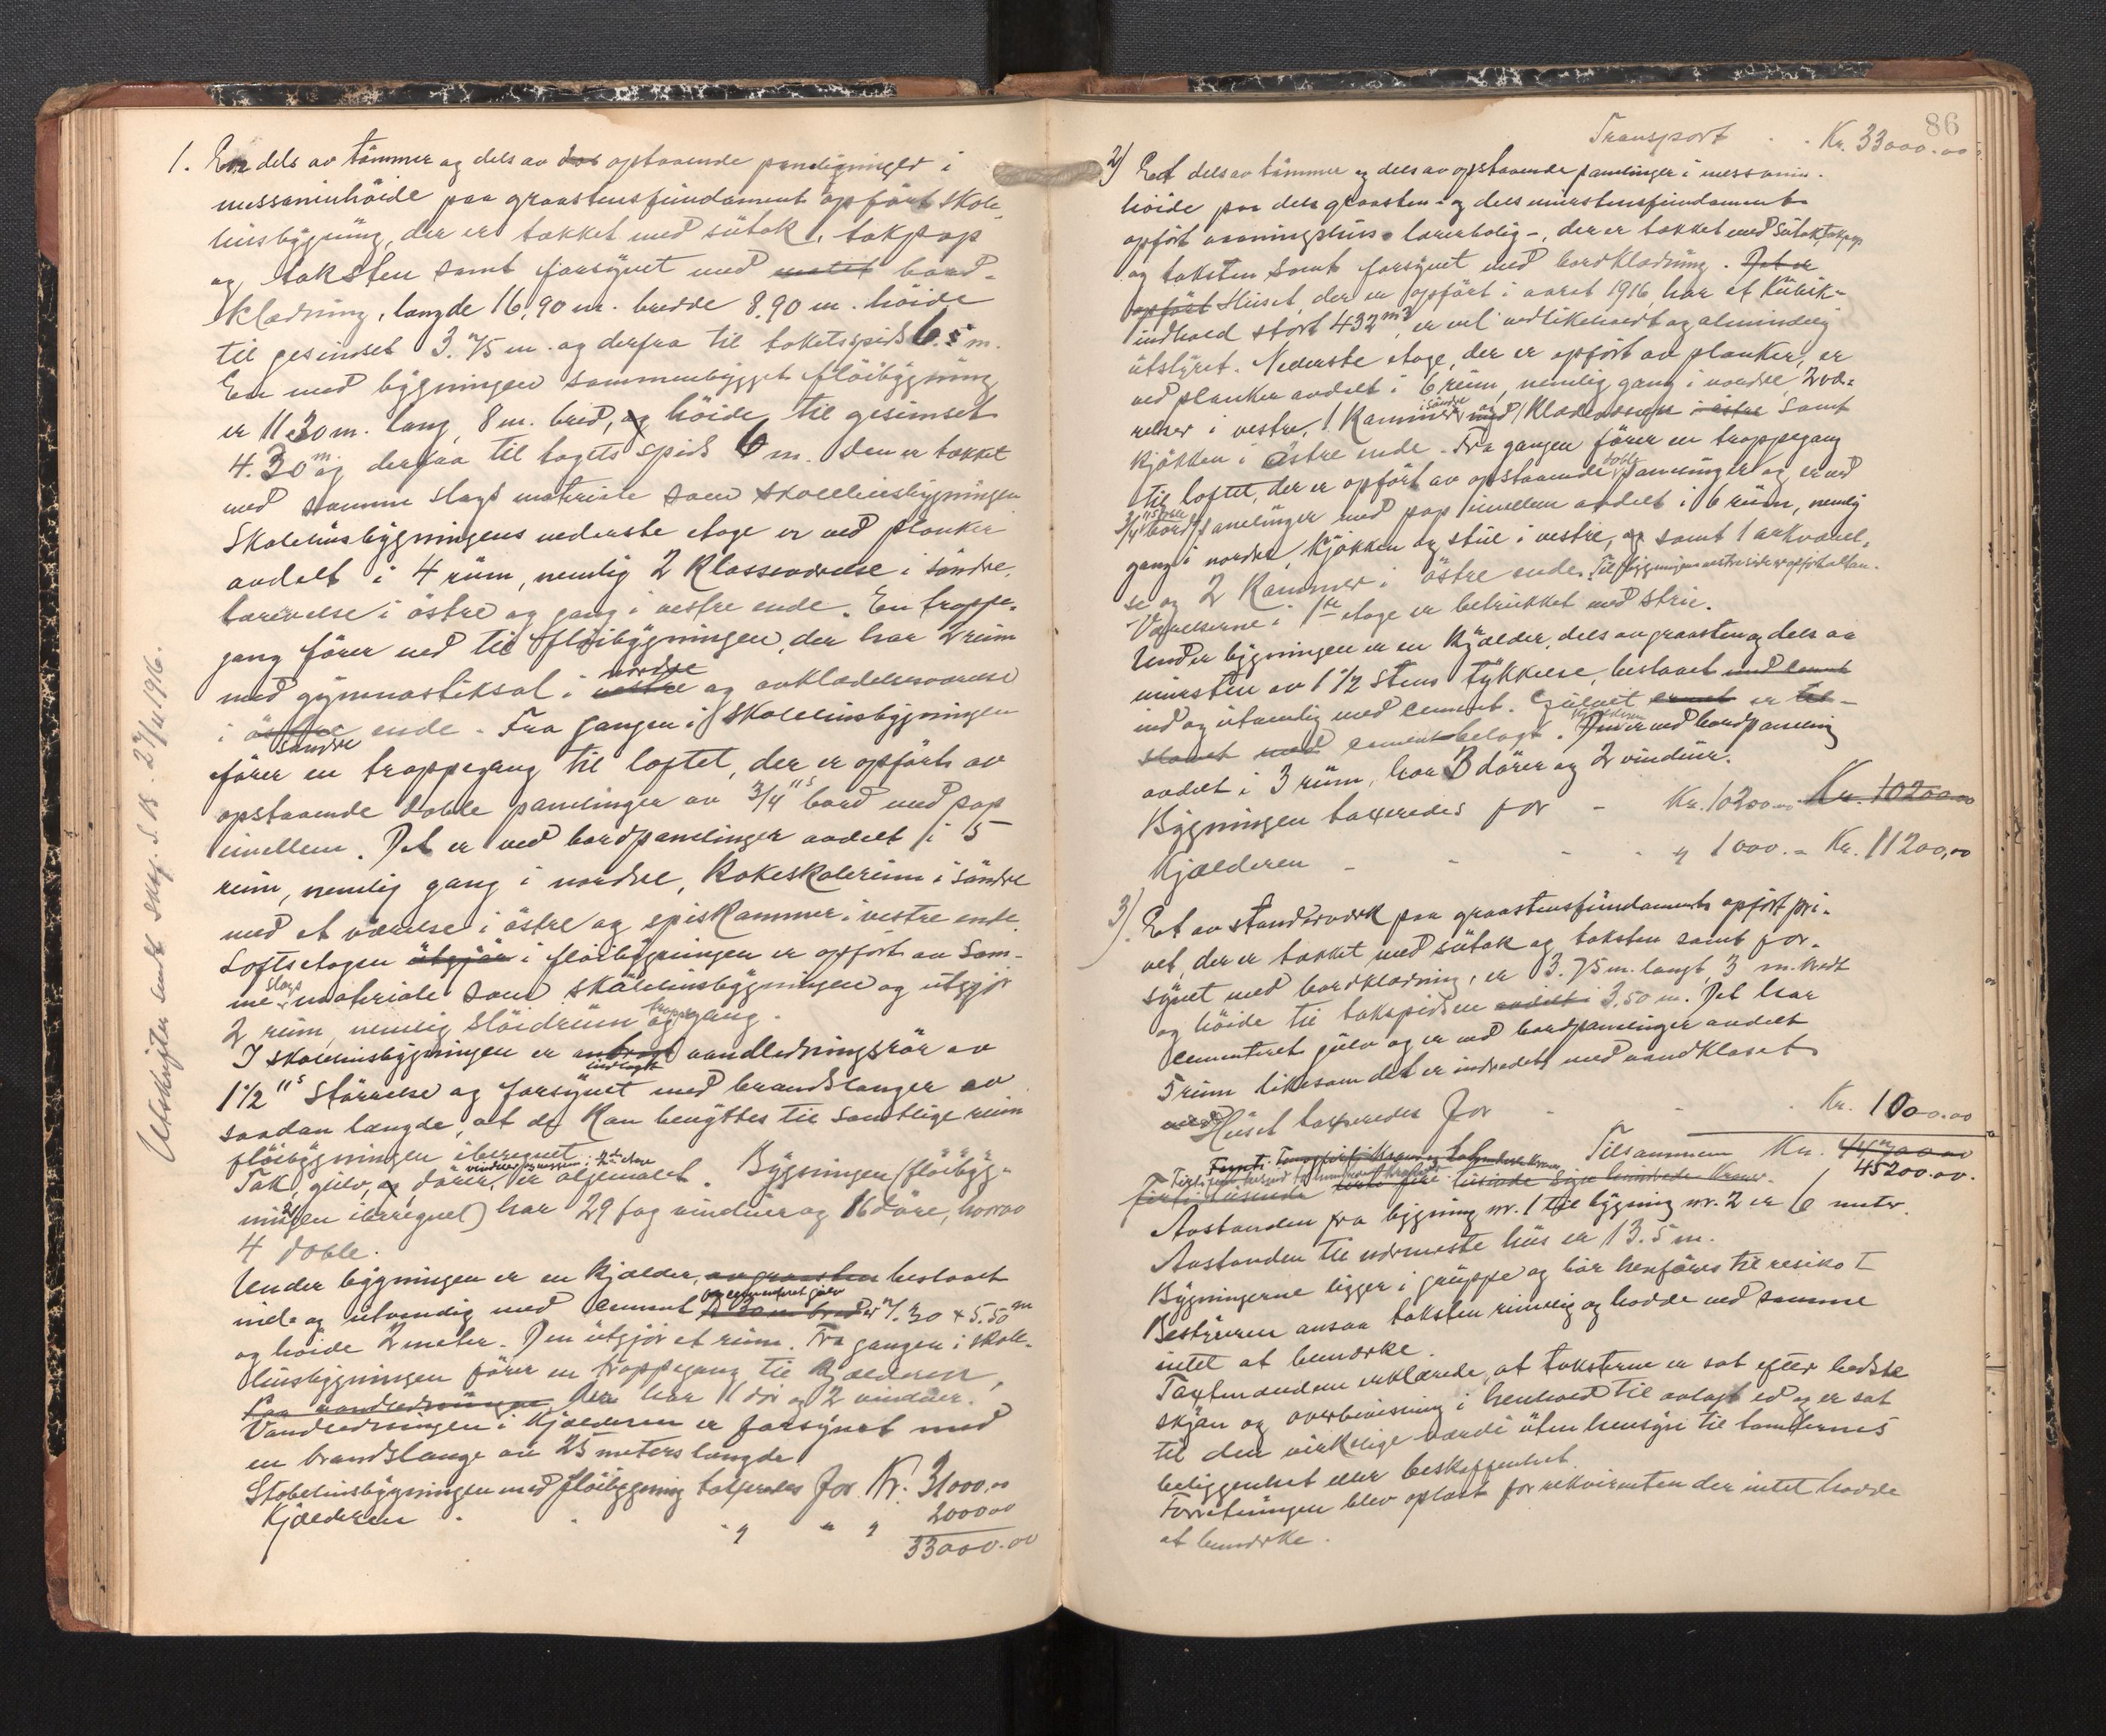 Utskrifter sendt skog. d. 18. 27/11 1916.
1. En dels av tömmer og dels av dob opstaaende panelinger i
messaninhöide paa graastensfundament opfört skole-
husbygning, der er tækket med sütak, takpap
og taksten samt forsynet med malet bord-
klædning, længde 16,90 m. bredde 8,90 m. höide
til gesimset 3.75 m. og derfra til taketsspids 6.5 m.
En med bygningen sammenbygget flöibygning
er 11.30 m. lang, 8 m. bred, og höide til gesimset
4.30 m. og derfra til tagets spids 6 m. Den er tækket
med samme slags materiale som skolehusbygningen
Skolehusbygningens nederste etage er ved planker
avdelt i 4 rüm, nemlig 2 klasseværelse i söndre,
værelse i östre og gang i vestre ende. En trappe-
gang förer ned til flöibygningen, der har 2 rüm
med gymnastiksal i vestre nordre og avklædelsesværelse
i östre söndre ende. Fra gangen i skolehusbygningen
förer en trappegang til loftet, der er opfört av
opstaaende doble panelinger av 3/4"s bord med pap
imellem. Det er ved bordpanelinger avdelt i 5
rüm, nemlig gang i nordre, kokeskolerüm i söndre
med et værelse i östre og spiskammer i vestre ende.
Loftsetagen utgjör i flöibygningen er opfört av sam-
me slags materiale som skolehusbygningen og utgjör
2 rüm, nemlig slöidrüm og gang.
I skolehusbygningen er anbragt indlagt vandledningsrör av
1 1/2"s störrelse og forsynet med brandslanger av
saadan længde, at de kan benyttes til samtlige rüm
flöibygningen iberegnet.
Tak, gulv, og dörer, vinduer er oljemalet. Bygningen (flöibyg-
ningen iberegnet) har 29 fag vinduer og 16 döre, hvorav
4 doble.
Under bygningen er en kjælder, av graasten beslaaet
inde og utvendig med cement og cementeret gulv 7.30 x 5.50 m
og höide 2 meter. Den utgjör et rüm. Fra gangen i skole-
husbygningen förer en trappegang til kjælderen,
Fra vandledningen der har 1 dör og 2 vinduer.
Vandledningen i kjælderen er forsynet med
en brandslange av 25 meters længde.
Skolehusbygningen med flöibygning taxeredes for Kr. 31000.00
Kjælderen " " " 2000.00
33000.00
86
Transport Kr. 33000.00
2) Et dels av tömmer og dels av opstaaende panelinger i messanin-
höide paa dels graasten- og dels murstensfundament
opfört vaaningshus - lærerbolig -, der er tækket med sütak, takpap
og taksten samt forsynet med bordklædning. Det er
opfört Huset, der er opfört i aaret 1916, har et kubik-
indhold stort 432 m3, er vel vedlikeholdt og almindelig
utstyret. Nederste etage, der er opfört av planker, er
ved planker avdelt i 6 rüm, nemlig gang i nordre, 2 væ-
relser i vestre, 1 kammer i söndre med klædværelse i östre samt
kjökken i östre ende. Fra gangen förer en trappegang
til loftet, der er opfört av opstaaende doble panelinger og er ved
3/4"s bord panelinger med pap imellem avdelt i 6 rüm, nemlig
gang i nordre, kjökken og stue i vestre, og samt 1 arkværel-
se og 2 kammer i östre ende. Til bygningens vestre side er opfört altan.
Værelserne i 1ste etage er betrukket med strie.
Under bygningen er en kjælder, dels av graasten og dels av
mursten av 1 1/2 stens tykkelse, beslaaet med cement
ind og utvendig med cement. Gulvet er til-
slaaet med cementbelagt. Kjælderen er ved bordpaneling
avdelt i 3 rüm, har 3 dörer og 2 vinduer.
Bygningen taxeredes for - Kr. 10200.00 Kr. 10200.00
Kjælderen - - - - " 1000. - Kr. 11200,00
3). Et av stenderverk paa graastensfundament opfört pri-
vet, der er tækket med sütak og taksten samt for-
synet med bordklædning, er 3.75 m. langt, 3 m. bredt
og höide til takspidsen avdelt i 3,50 m. Det har
cementeret gulv og er ved bordpanelinger avdelt
5 rüm likesom det er indredet med vandkloset
med Huset taxeredes for - - Kr. 1000.00
Tilsammen Kr. 45200.00.
Avstanden fra bygning nr. 1 til bygning nr. 2 er 6 meter.
Avstanden til nærmeste hus er 13.5 m.
Bygningerne ligger i gruppe og bör henföres til risiko I
Bestyreren ansaa taksten rimelig og hadde ved samme
intet at bemerke.
Taxtmændene erklærede, at taksterne er sat efter bedste
skjön og overbevisning i henhold til avlagt ed og er sat
til den virkelige værdi uten hensyn til tomternes
beliggenhet eller beskaffenhet.
Forretningen blev oplæst for rekvirenten der intet hadde
at bemerke.